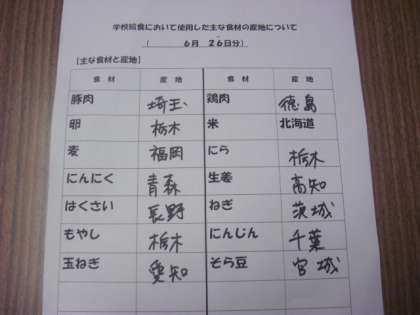 学校給食において使用した主な食材の産地について
(6月 26日分)
【主な食材と産地】
食材 産地 食材 産地
豚肉 埼玉 鶏肉 徳島
卵 栃木 米 北海道
麦 福岡 にら 栃木
にんにく 青森 生姜 高知
はくさい 長野 ねぎ 茨城
もやし 栃木 にんじん 千葉
玉ねぎ 愛知 そら豆 宮城